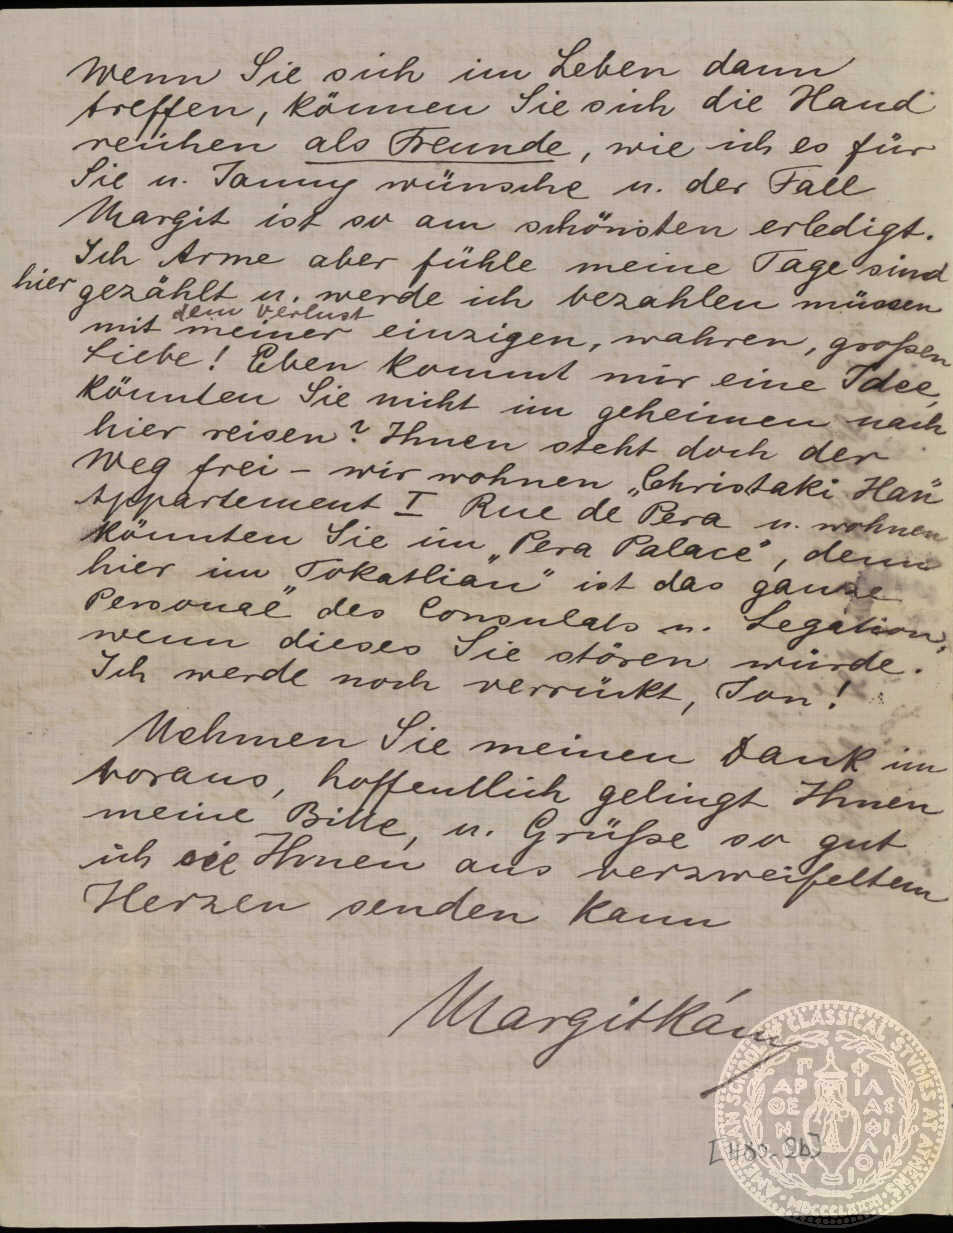 Wenn Sie sich im Leben dann
treffen, können Sie sich die Hand
reichen als Freunde, wie ich es für
Sie u. Janny wünsche u. der Fall
Margit ist so am schönsten erledigt.
Ich Arme aber fühle meine Tage sind
hier gezählt u. werde ich bezahlen müssen
dem Verlust
mit meiner einzigen, wahren, großen
Liebe! Eben kommt mir eine Idee,
könnten Sie nicht im geheimen nach
hier reisen? Ihnen steht doch der
Weg frei – wir wohnen „Christaki Han"
Appartement I Rue de Pera u. wohnen
könnten Sie im „Pera Palace", denn
hier im „Tokatlian" ist das ganze
Personal des Consulats u. Legation,
wenn dieses Sie stören würde.
Ich werde noch verrückt, Ion!
Nehmen Sie meinen Dank im
voraus, hoffentlich gelingt Ihnen
meine Bitte, u. Grüße so gut
ich sie Ihnen aus verzweifeltem
Herzen senden kann
Margitkám
[H80-2b]
AMERICAN SCHOOL OF CLASSICAL STUDIES AT ATHENS
ΠΑΡΘΕΝΟΥ ΦΙΛΑΣ ΦΙΛΟ
MDCCCLXXXI